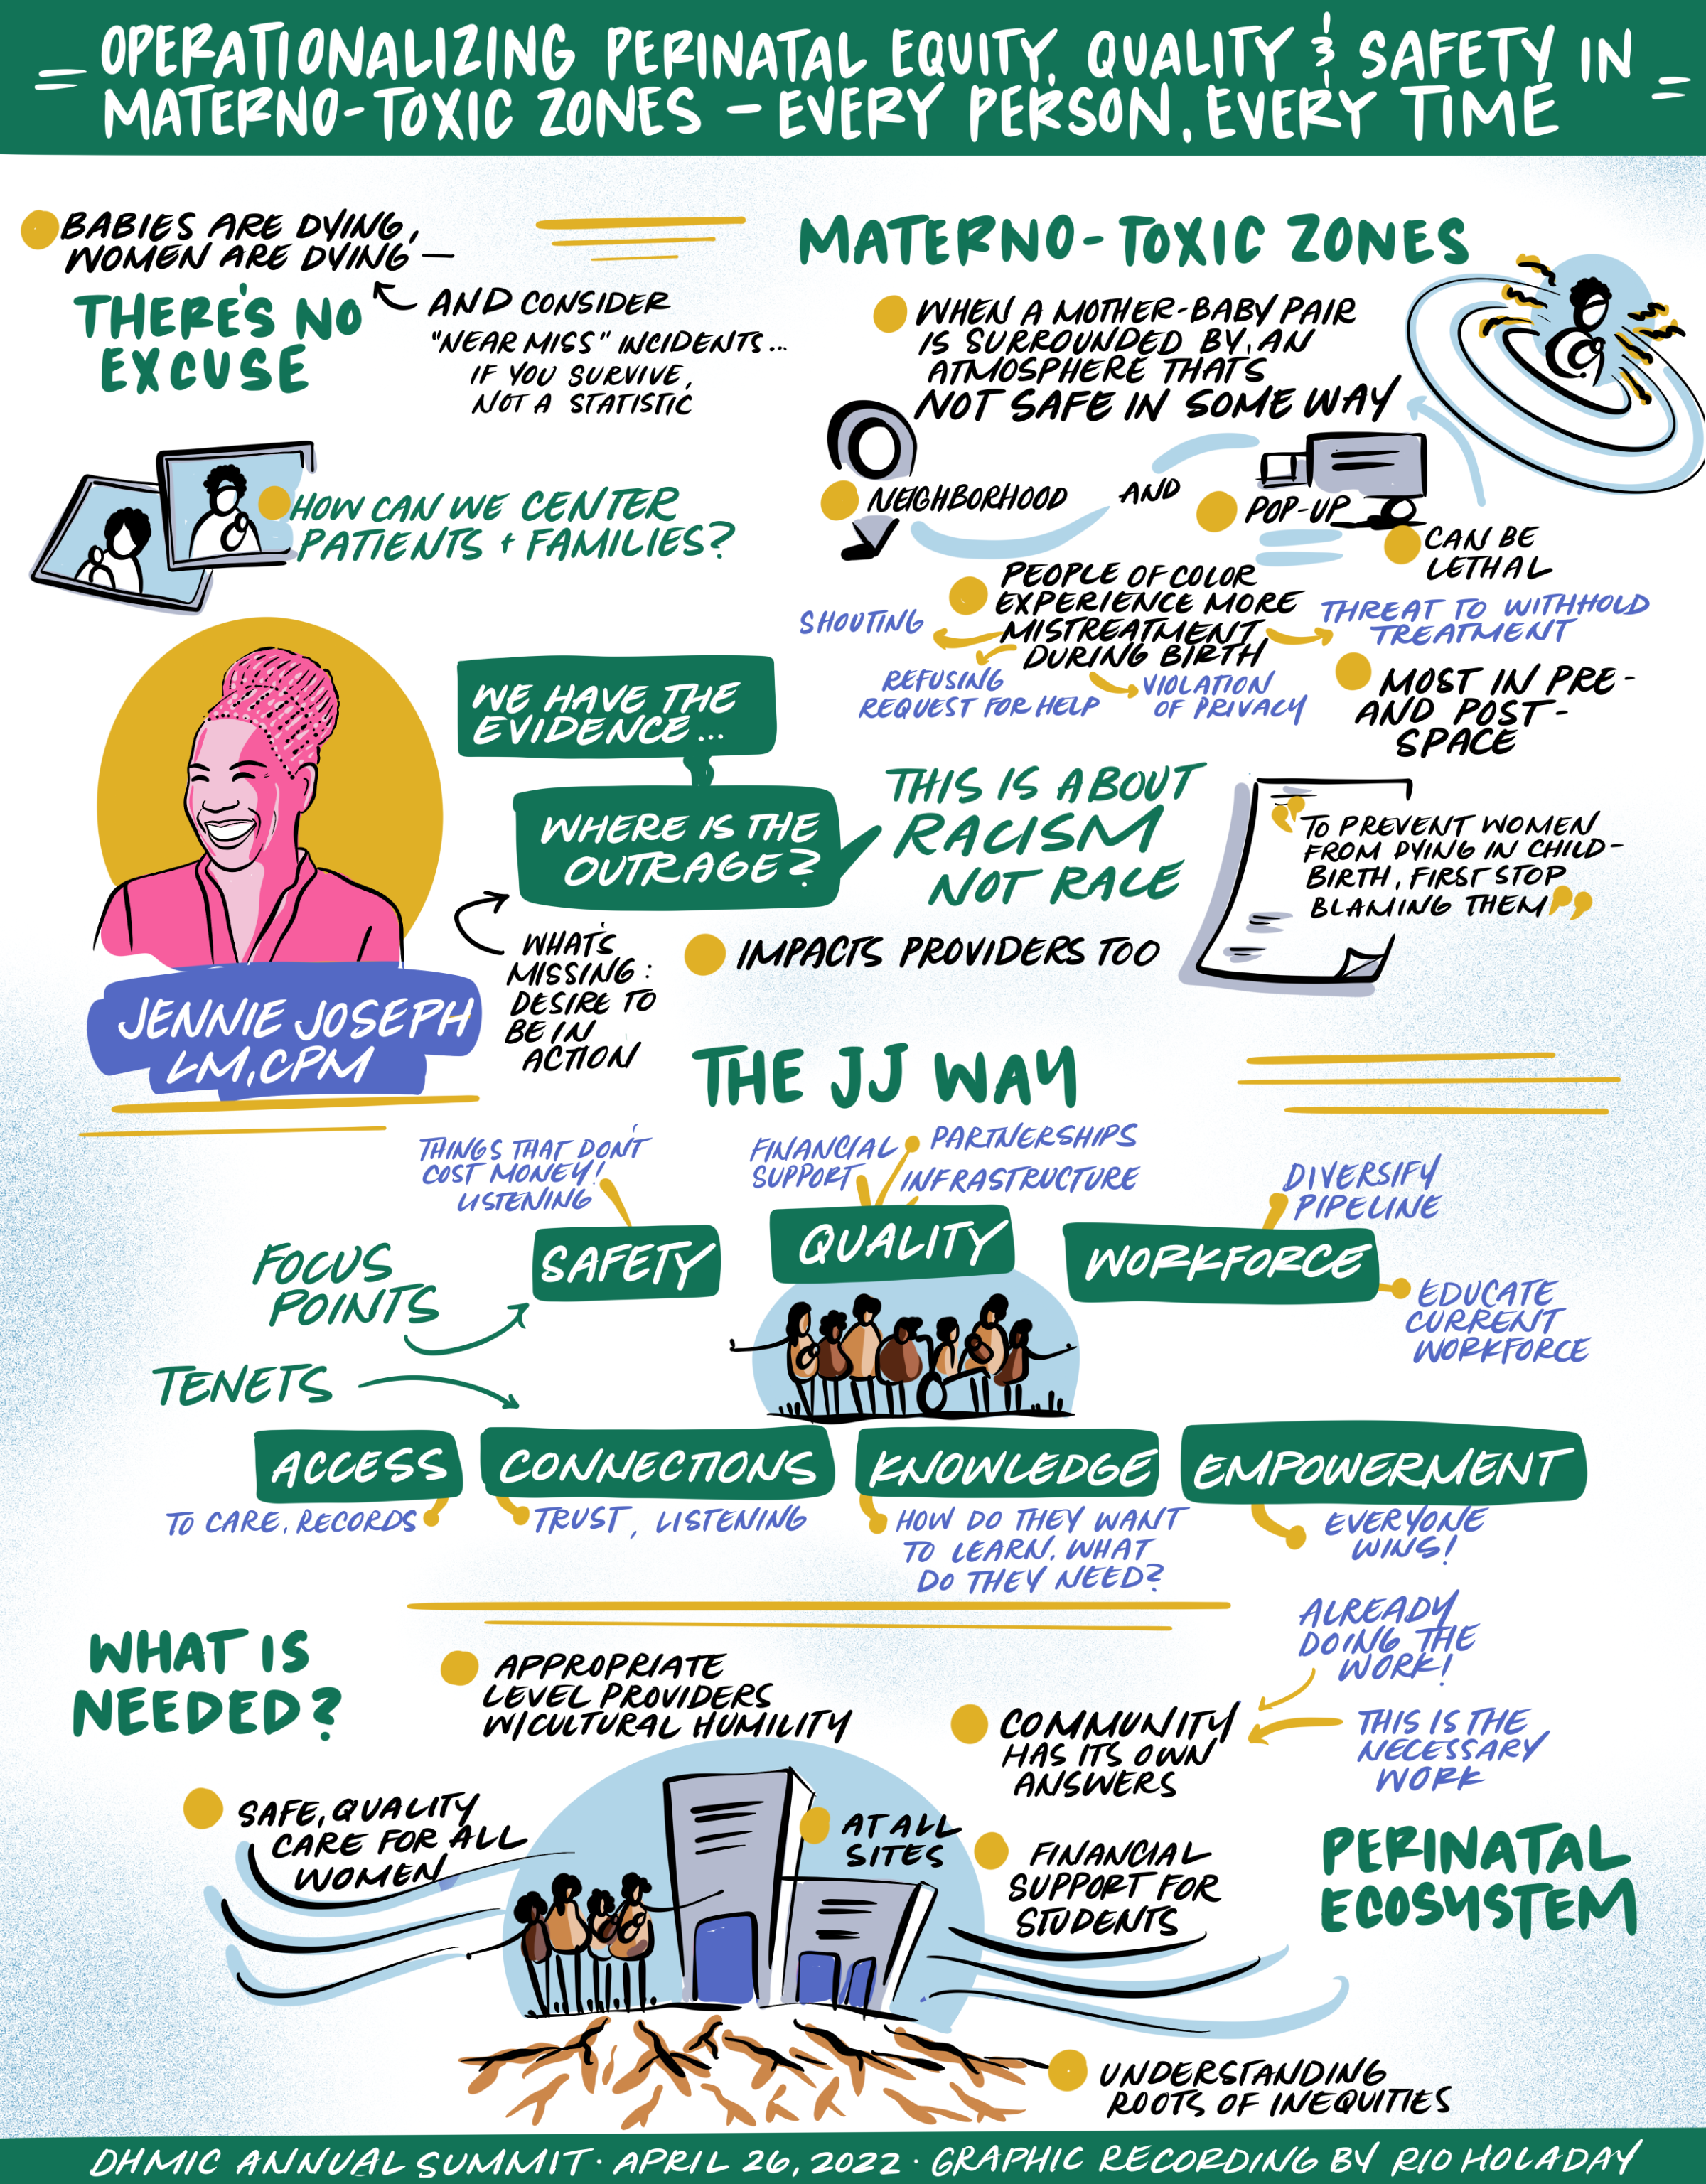 OPERATIONALIZING PERINATAL EQUITY, QUALITY & SAFETY IN
MATERNO-TOXIC ZONES - EVERY PERSON, EVERY TIME
BABIES ARE DYING,
WOMEN ARE DYING —
THERE'S NO
EXCUSE
AND CONSIDER
"NEAR MISS" INCIDENTS...
IF YOU SURVIVE,
NOT A STATISTIC
HOW CAN WE CENTER
PATIENTS + FAMILIES?
MATERNO-TOXIC ZONES
WHEN A MOTHER-BABY PAIR
IS SURROUNDED BY AN
ATMOSPHERE THAT'S
NOT SAFE IN SOME WAY
NEIGHBORHOOD
AND
POP-UP
CAN BE
LETHAL
PEOPLE OF COLOR
EXPERIENCE MORE
MISTREATMENT
DURING BIRTH
SHOUTING
REFUSING
REQUEST FOR HELP
VIOLATION
OF PRIVACY
THREAT TO WITHHOLD
TREATMENT
MOST IN PRE-
AND POST-
SPACE
WE HAVE THE
EVIDENCE...
WHERE IS THE
OUTRAGE?
THIS IS ABOUT
RACISM
NOT RACE
"TO PREVENT WOMEN
FROM DYING IN CHILD-
BIRTH, FIRST STOP
BLAMING THEM"
WHAT'S
MISSING:
DESIRE TO
BE IN
ACTION
IMPACTS PROVIDERS TOO
JENNIE JOSEPH
LM, CPM
THE JJ WAY
THINGS THAT DON'T
COST MONEY!
LISTENING
FINANCIAL
SUPPORT
PARTNERSHIPS
INFRASTRUCTURE
DIVERSIFY
PIPELINE
FOCUS
POINTS
SAFETY
QUALITY
WORKFORCE
EDUCATE
CURRENT
WORKFORCE
TENETS
ACCESS
CONNECTIONS
KNOWLEDGE
EMPOWERMENT
TO CARE, RECORDS
TRUST, LISTENING
HOW DO THEY WANT
TO LEARN, WHAT
DO THEY NEED?
EVERYONE
WINS!
WHAT IS
NEEDED?
APPROPRIATE
LEVEL PROVIDERS
W/CULTURAL HUMILITY
ALREADY
DOING THE
WORK!
COMMUNITY
HAS ITS OWN
ANSWERS
THIS IS THE
NECESSARY
WORK
SAFE, QUALITY
CARE FOR ALL
WOMEN
AT ALL
SITES
FINANCIAL
SUPPORT FOR
STUDENTS
PERINATAL
ECOSYSTEM
UNDERSTANDING
ROOTS OF INEQUITIES
DHMIC ANNUAL SUMMIT · APRIL 26, 2022 · GRAPHIC RECORDING BY RIO HOLADAY